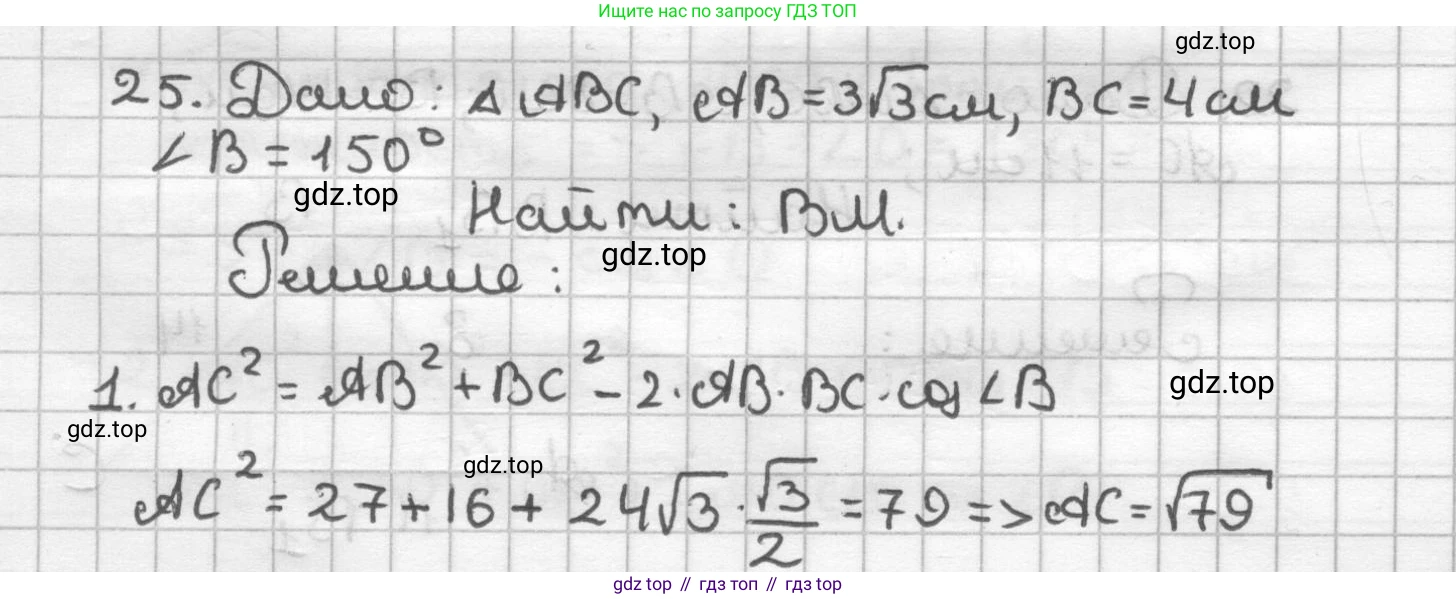 Ищите нас по запросу ГДЗ ТОП
gdz.top
25. Дано: △ ABC, AB = 3√3 см, BC = 4 см
∠B = 150°
gdz.top
Найти: BM.
gdz.top
Решение:
1. AC² = AB² + BC² - 2 · AB · BC · cos ∠B
gdz.top
gdz.top
gdz.top
AC² = 27 + 16 + 24√3 · √3/2 = 79 => AC = √79
gdz top // гдз топ // гдз top